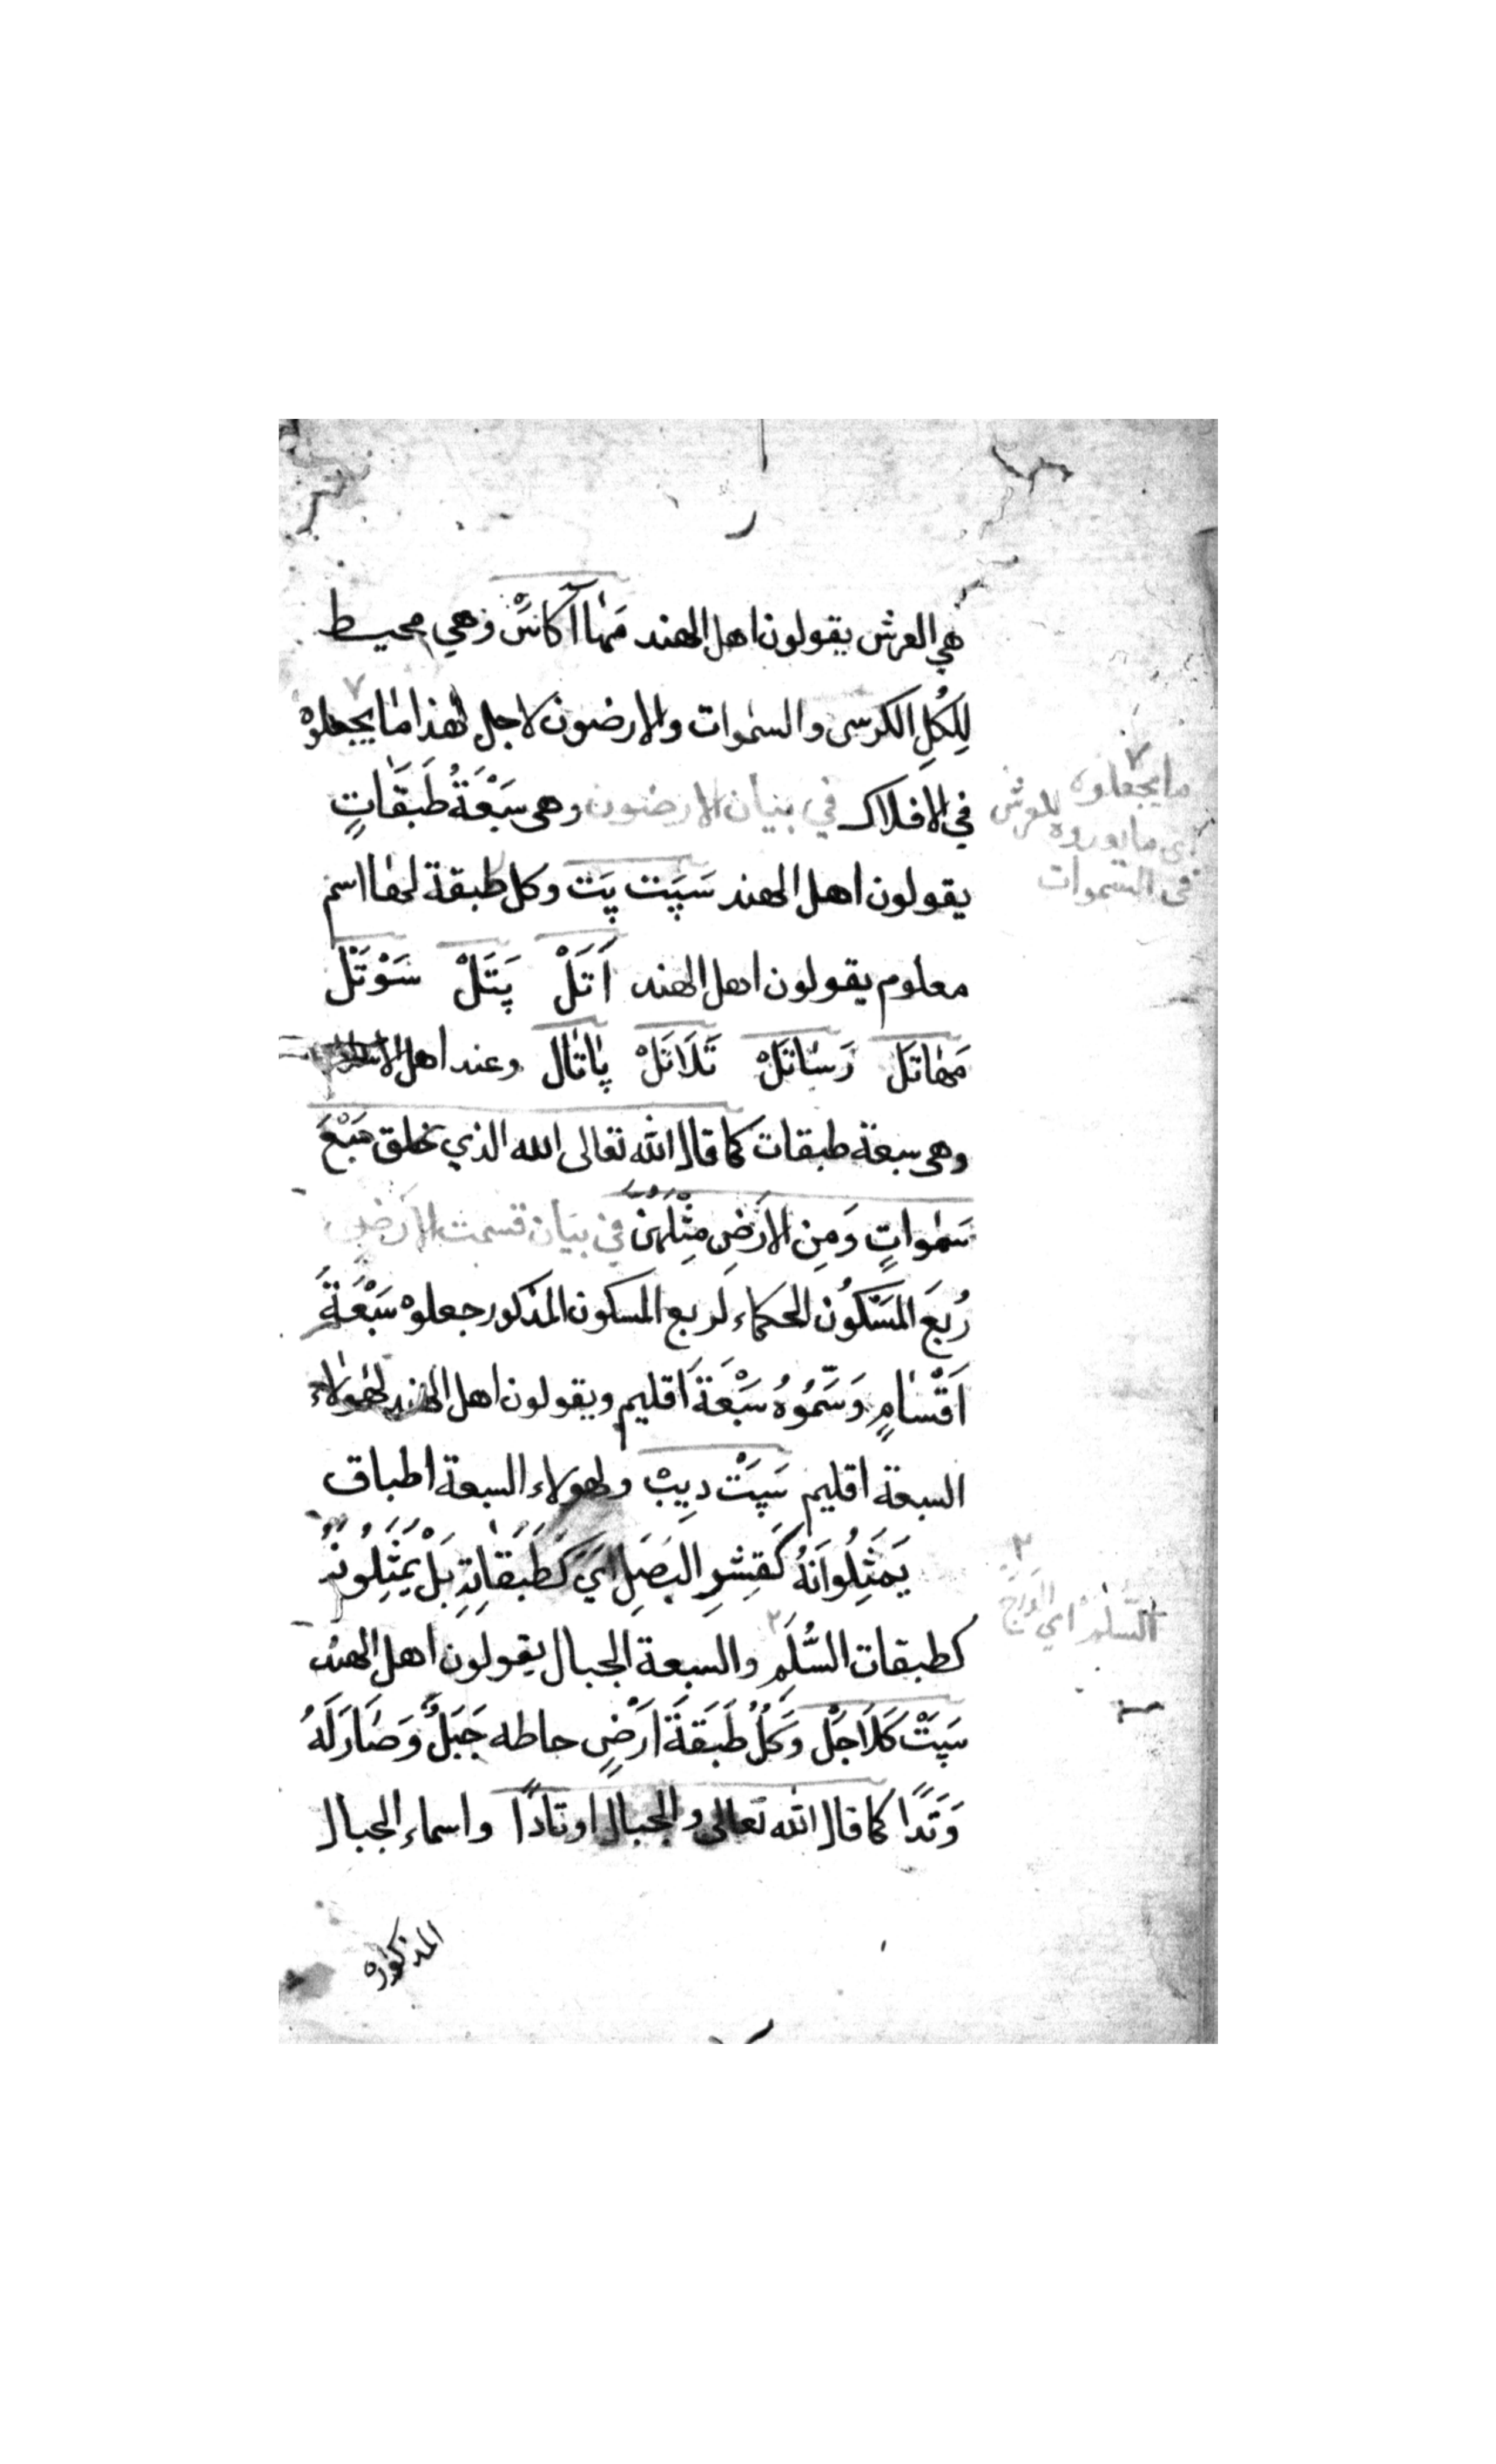 هي العرش يقولون اهل الهند مَهٰا آكاسْ وهي محيط
لِلكُلِ الكرسى والسمٰوات والارضون لاجل هٰذا مٰا يجعلوه
في الافلاك في بيان الارضون وهى سَبْعَةُ طَبَقَاتٍ
يقولون اهل الهند سَپَت پَت وكل طبقة لهٰا اسم
معلوم يقولون اهل الهند اَتَلْ پَتَلْ سَوْتَلْ
مَهٰاتَلْ رَسٰاتَلْ تَلَاتَلْ پٰاتٰالْ وعند اهل
وهى سبعة طبقات كما قال الله تعالى الله الذي خلق سَبْعَ
سَمٰواتٍ وَمِنِ الاَرْضِ مِثْلَهُنَّ في بيَان قسمت الارَضِ
رُبعَ المَسْكُونُ الحكماء لربع المسكون المذكور جعلوهْ سَبْعَةَ
اَقْسٰامٍ وَسَّمُوُهُ سَبْعَةَ اَقليم ويقولون اهل الهند لهٰولاء
السبعة اقليم سَپَتْ دِيبْ ولهولاء السبعة اطباق
يَمَثِلُوانَهُ كَقِشِرِ البَصَلِ اَيَ كَطَبَقٰاتِهِ بَلْ يَمَثِلُونَهُ
كطبقات السُّلَّمِ ٢ والسبعة الجبال يقولون اهل الهند
سَپَتْ كَلَاجَلْ وَكُلُ طَبَقَةَ اَرْضٍ حاطه جَبَلٌ وَصَٰارَ لَهُ
وَتَدًا كما قال الله تعالى والجبال اوتادًا واسماء الجبال
المذكوره
٧
ما يجعلوه للعرش
فى السموات
٢
السلم اي الدَرَجْ